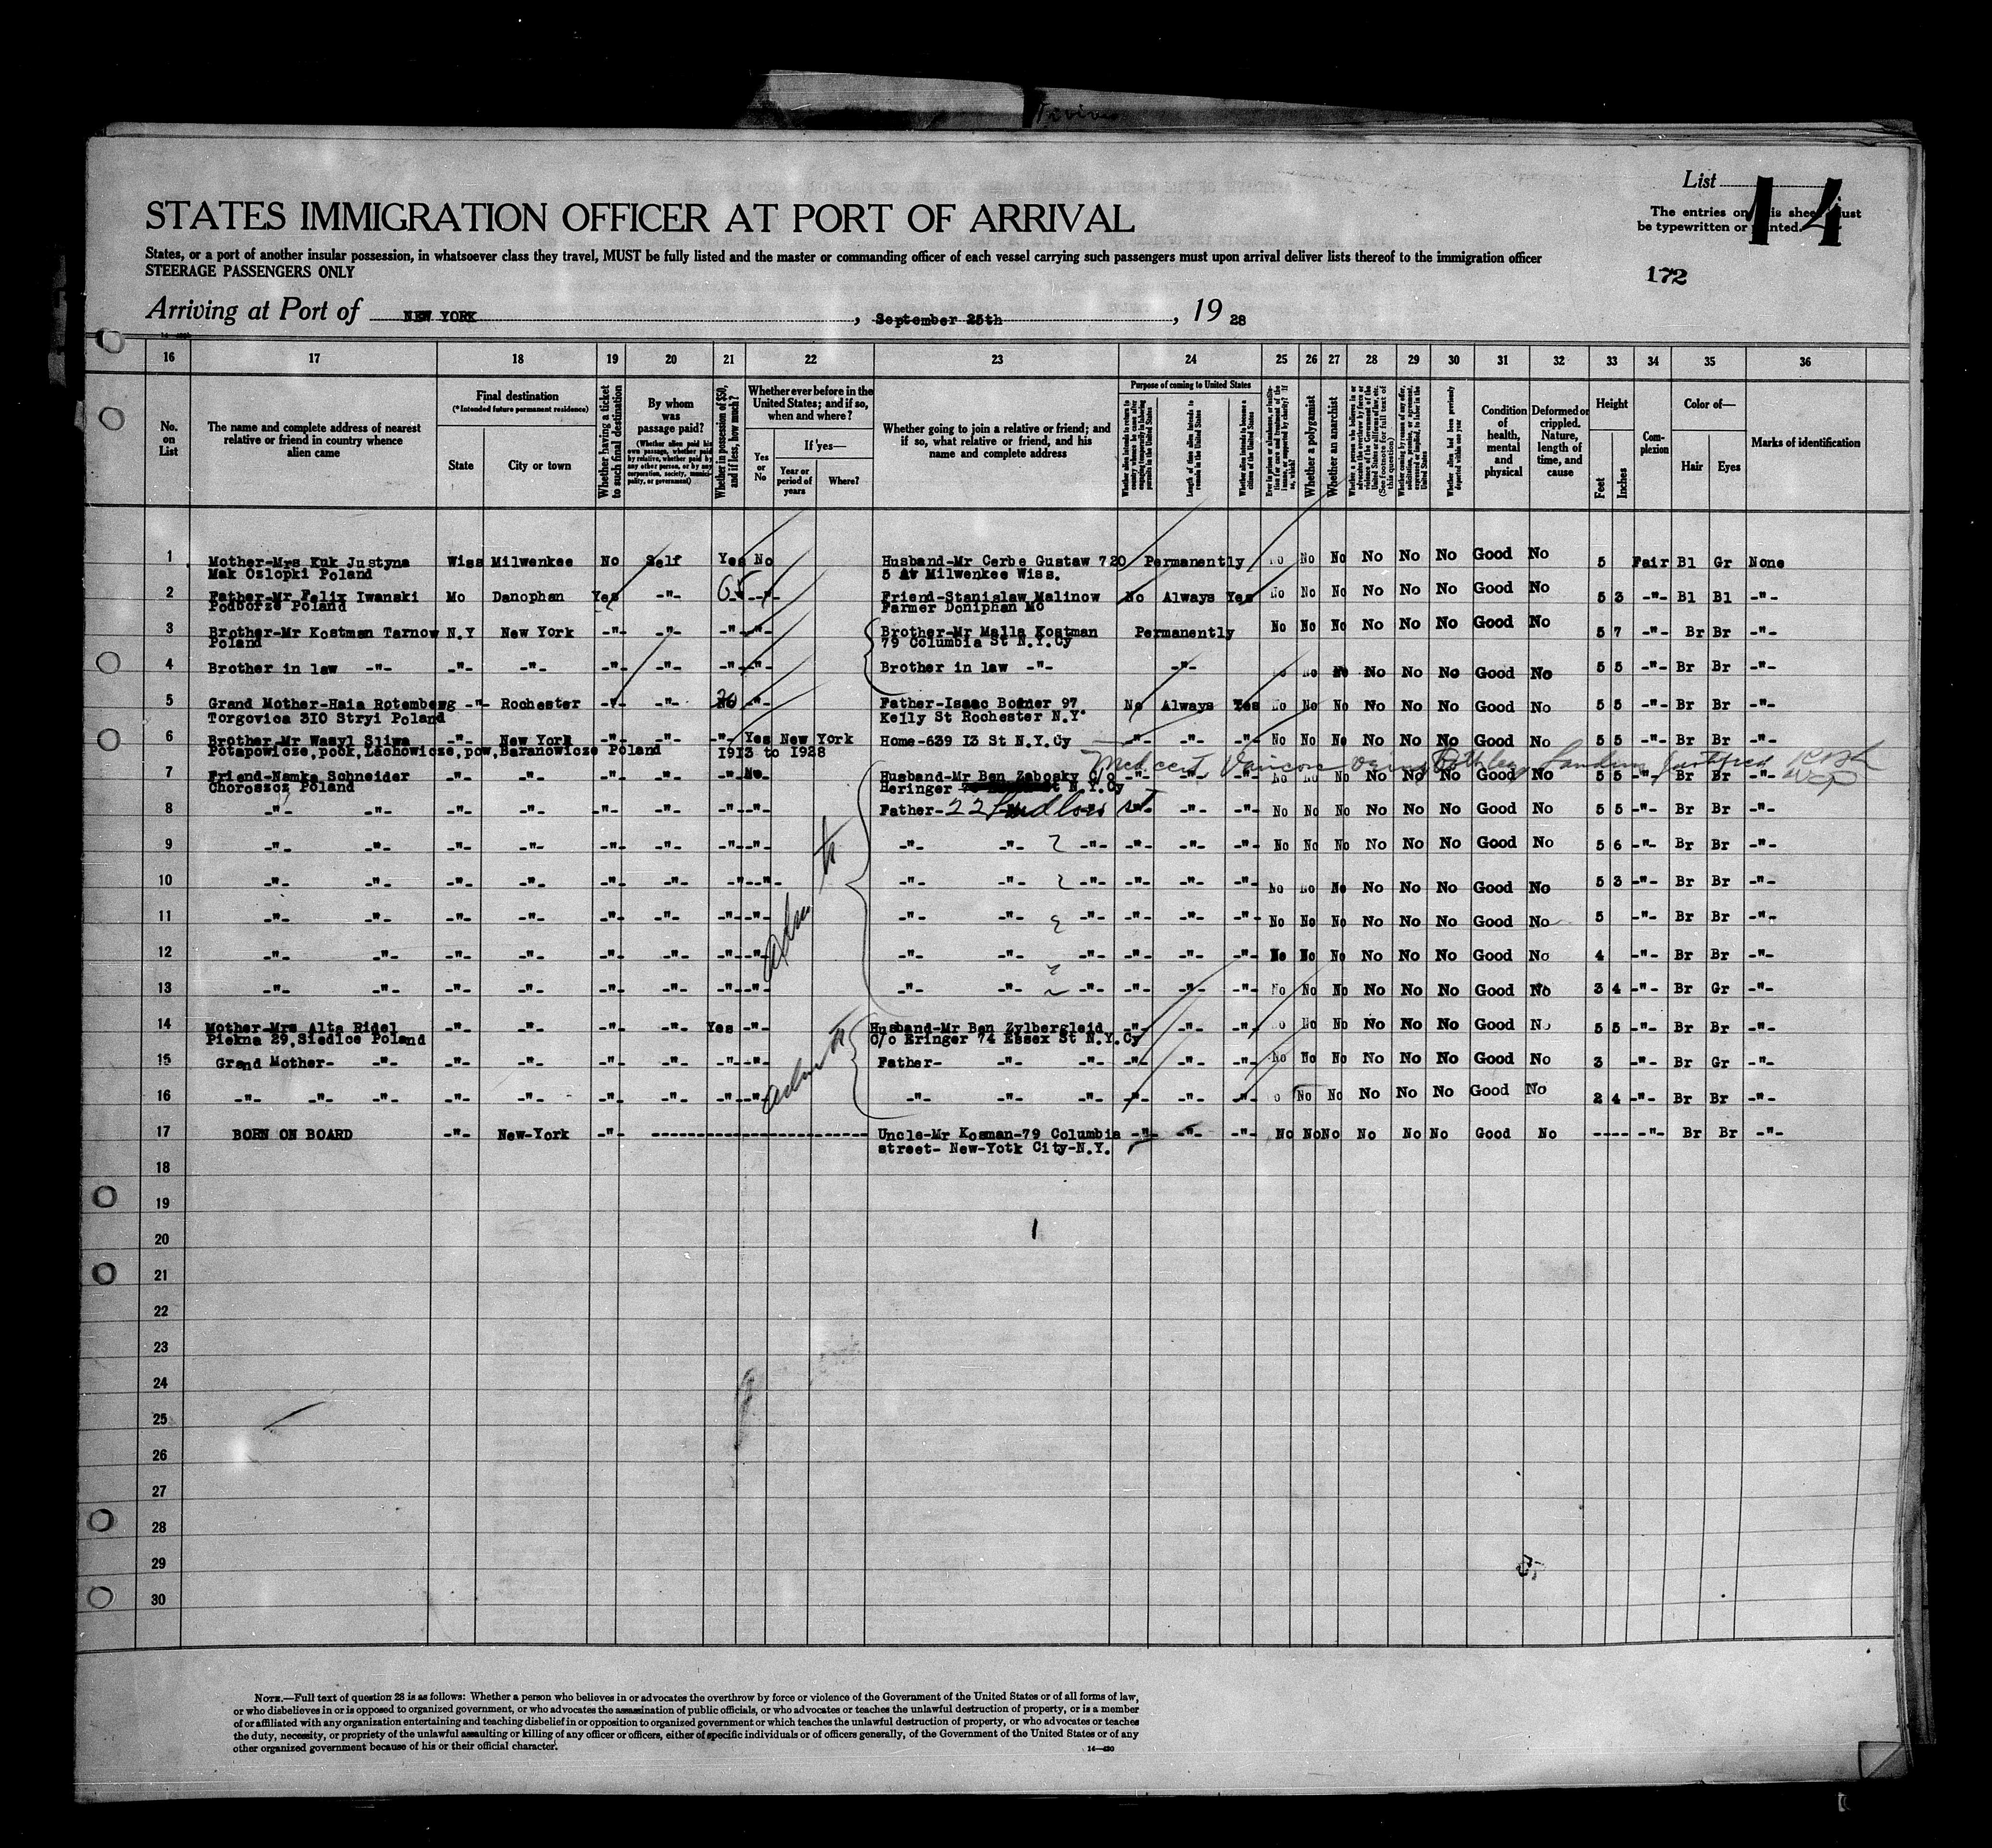 List 14
The entries on this sheet must
be typewritten or printed.
172
STATES IMMIGRATION OFFICER AT PORT OF ARRIVAL
States, or a port of another insular possession, in whatsoever class they travel, MUST be fully listed and the master or commanding officer of each vessel carrying such passengers must upon arrival deliver lists thereof to the immigration officer
STEERAGE PASSENGERS ONLY
Arriving at Port of NEW YORK, September 25th, 19 28
16 17 18 19 20 21 22 23 24 25 26 27 28 29 30 31 32 33 34 35 36
No. on List
The name and complete address of nearest relative or friend in country whence alien came
Final destination
(*Intended future permanent residence)
State
City or town
Whether having a ticket to such final destination
By whom was passage paid?
(Whether alien paid his own passage, whether paid by relative, whether paid by any other person, or by any corporation, society, municipality, or government)
Whether in possession of $50, and if less, how much?
Whether ever before in the United States; and if so, when and where?
Yes or No
If yes—
Year or period of years
Where?
Whether going to join a relative or friend; and if so, what relative or friend, and his name and complete address
Purpose of coming to United States
Length of time alien intends to remain in the United States
Whether alien intends to become a citizen of the United States
Whether a polygamist
Whether an anarchist
Condition of health, mental and physical
Deformed or crippled. Nature, length of time, and cause
Height
Feet
Inches
Complexion
Color of—
Hair
Eyes
Marks of identification
1 Mother-Mrs Kuk Justyna Wiss Milwenkee No Self Yes No Husband-Mr Cerbe Gustaw 720 Permanently No No No No No No Good No 5 Fair Bl Gr None
Mak Ozlopki Poland 5 Av Milwenkee Wiss.
2 Father-Mr Felix Iwanski Mo Danophan Yes -"- 65 -"- Friend-Stanislaw Malinow No Always Yes No No No No No No Good No 5 3 -"- Bl Bl -"-
Podborze Poland Farmer Doniphan Mo
3 Brother-Mr Kostman Tarnow N.Y New York -"- -"- -"- -"- Brother-Mr Malla Kostman Permanently No No No No No No Good No 5 7 -"- Br Br -"-
Poland 79 Columbia St N.Y.Cy
4 Brother in law -"- -"- -"- -"- -"- -"- -"- Brother in law -"- -"- No No No No No No Good No 5 5 -"- Br Br -"-
5 Grand Mother-Haia Rotemberg -"- Rochester -"- -"- 20 -"- Father-Isaac Bodner 97 No Always Yes No No No No No No Good No 5 5 -"- Br Br -"-
Torgovica 310 Stryi Poland Keily St Rochester N.Y.
6 Brother-Mr Wasyl Sliwa -"- New York -"- -"- -"- Yes New York Home-639 I3 St N.Y.Cy -"- -"- -"- No No No No No No Good No 5 5 -"- Br Br -"-
Potapowicze,pook,Lachowicze,pow,Baranowicze Poland 1913 to 1928
Med cert Varicose veins Landing
7 Friend-Namka Schneider -"- -"- -"- -"- -"- No Husband-Mr Ben Zabosky C/o -"- -"- -"- No No No No No No Good No 5 5 -"- Br Br -"-
Choroszcz Poland Heringer N.Y.Cy
8 -"- -"- -"- -"- -"- -"- -"- -"- Father- 22 Ludlow st -"- -"- -"- No No No No No No Good No 5 5 -"- Br Br -"-
9 -"- -"- -"- -"- -"- -"- -"- -"- -"- -"- -"- -"- -"- -"- No No No No No No Good No 5 6 -"- Br Br -"-
10 -"- -"- -"- -"- -"- -"- -"- -"- -"- -"- -"- -"- -"- -"- No No No No No No Good No 5 3 -"- Br Br -"-
11 -"- -"- -"- -"- -"- -"- -"- -"- -"- -"- -"- -"- -"- -"- No No No No No No Good No 5 -"- Br Br -"-
12 -"- -"- -"- -"- -"- -"- -"- -"- -"- -"- -"- -"- -"- -"- No No No No No No Good No 4 -"- Br Br -"-
13 -"- -"- -"- -"- -"- -"- -"- -"- -"- -"- -"- -"- -"- -"- No No No No No No Good No 3 4 -"- Br Gr -"-
14 Mother-Mrs Alta Ridel -"- -"- -"- -"- Yes -"- Husband-Mr Ben Zylbergleid -"- -"- -"- No No No No No No Good No 5 5 -"- Br Br -"-
Piekna 29,Siedlce Poland C/o Eringer 74 Essex St N.Y.Cy
15 Grand Mother- -"- -"- -"- -"- -"- -"- -"- Father- -"- -"- -"- -"- -"- No No No No No No Good No 3 -"- Br Gr -"-
16 -"- -"- -"- -"- -"- -"- -"- -"- -"- -"- -"- -"- -"- -"- -"- No No No No No Good No 2 4 -"- Br Br -"-
17 BORN ON BOARD -"- New-York -"- Uncle-Mr Kosman-79 Columbia -"- -"- -"- No No No No No No Good No ---- -"- Br Br -"-
street- New-Yotk City-N.Y.
18
19
20
21
22
23
24
25
26
27
28
29
30
NOTE.—Full text of question 28 is as follows: Whether a person who believes in or advocates the overthrow by force or violence of the Government of the United States or of all forms of law,
or who disbelieves in or is opposed to organized government, or who advocates the assassination of public officials, or who advocates or teaches the unlawful destruction of property, or is a member
of or affiliated with any organization entertaining and teaching disbelief in or opposition to organized government or which teaches the unlawful destruction of property, or who advocates or teaches
the duty, necessity, or propriety of the unlawful assaulting or killing of any officer or officers, either of specific individuals or of officers generally, of the Government of the United States or of any
other organized government because of his or their official character.
14—430